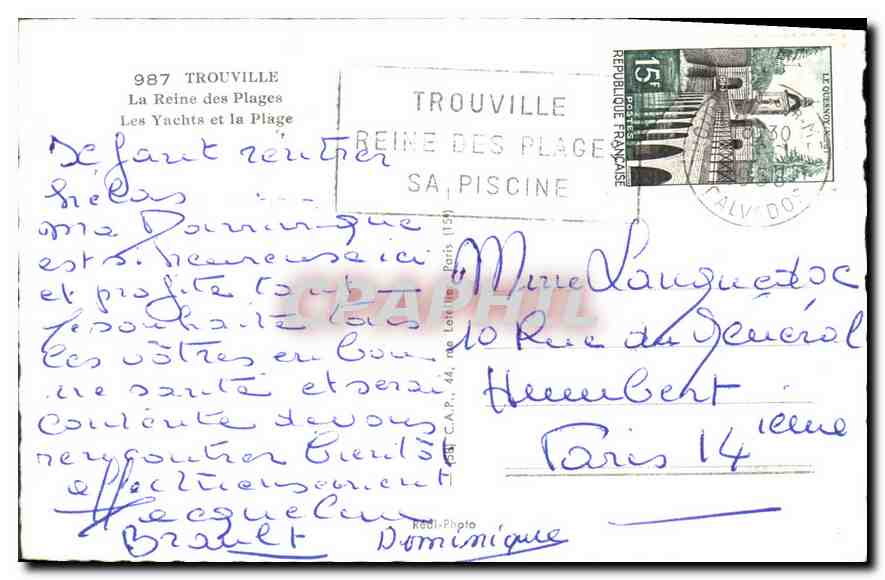 987 TROUVILLE
La Reine des Plages
Les Yachts et la Plage
TROUVILLE
REINE DES PLAGES
SA PISCINE
15F
POSTES
REPUBLIQUE FRANÇAISE
LE QUESNOY
CALVADOS
Il faut rentrer
hélas
ma Dominique
est si heureuse ici
et profite tant
Je souhaite tous
les vôtres en bon
ne santé et serai
contente de vous
rencontrer bientôt
affectueusement
Jacqueline
Brault Dominique
Mme Languedoc
10 Rue du Général
Humbert
Paris 14 ième
C.A.P., 44, rue Letellier Paris (15e)
Réal-Photo
CPAPHIL